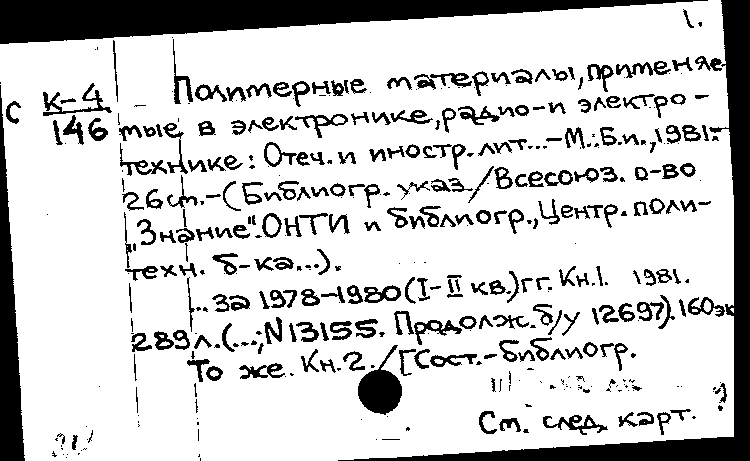 1.
С К-4/146 Полимерные материалы, применяе-
мые в электронике, радио- и электро-
технике: Отеч. и иностр. лит...-М.: Б.и., 1981.-
26см.-(Библиогр. указ./Всесоюз. о-во
„Знание". ОНТИ и библиогр., Центр. поли-
техн. б-ка...).
...За 1978-1980 (I-II кв.) гг. Кн.1. 1981.
289л.(...; N13155. Продолж. б/у 12697). 160эк
То же. Кн.2./[Сост.-библиогр.
См. след. карт.